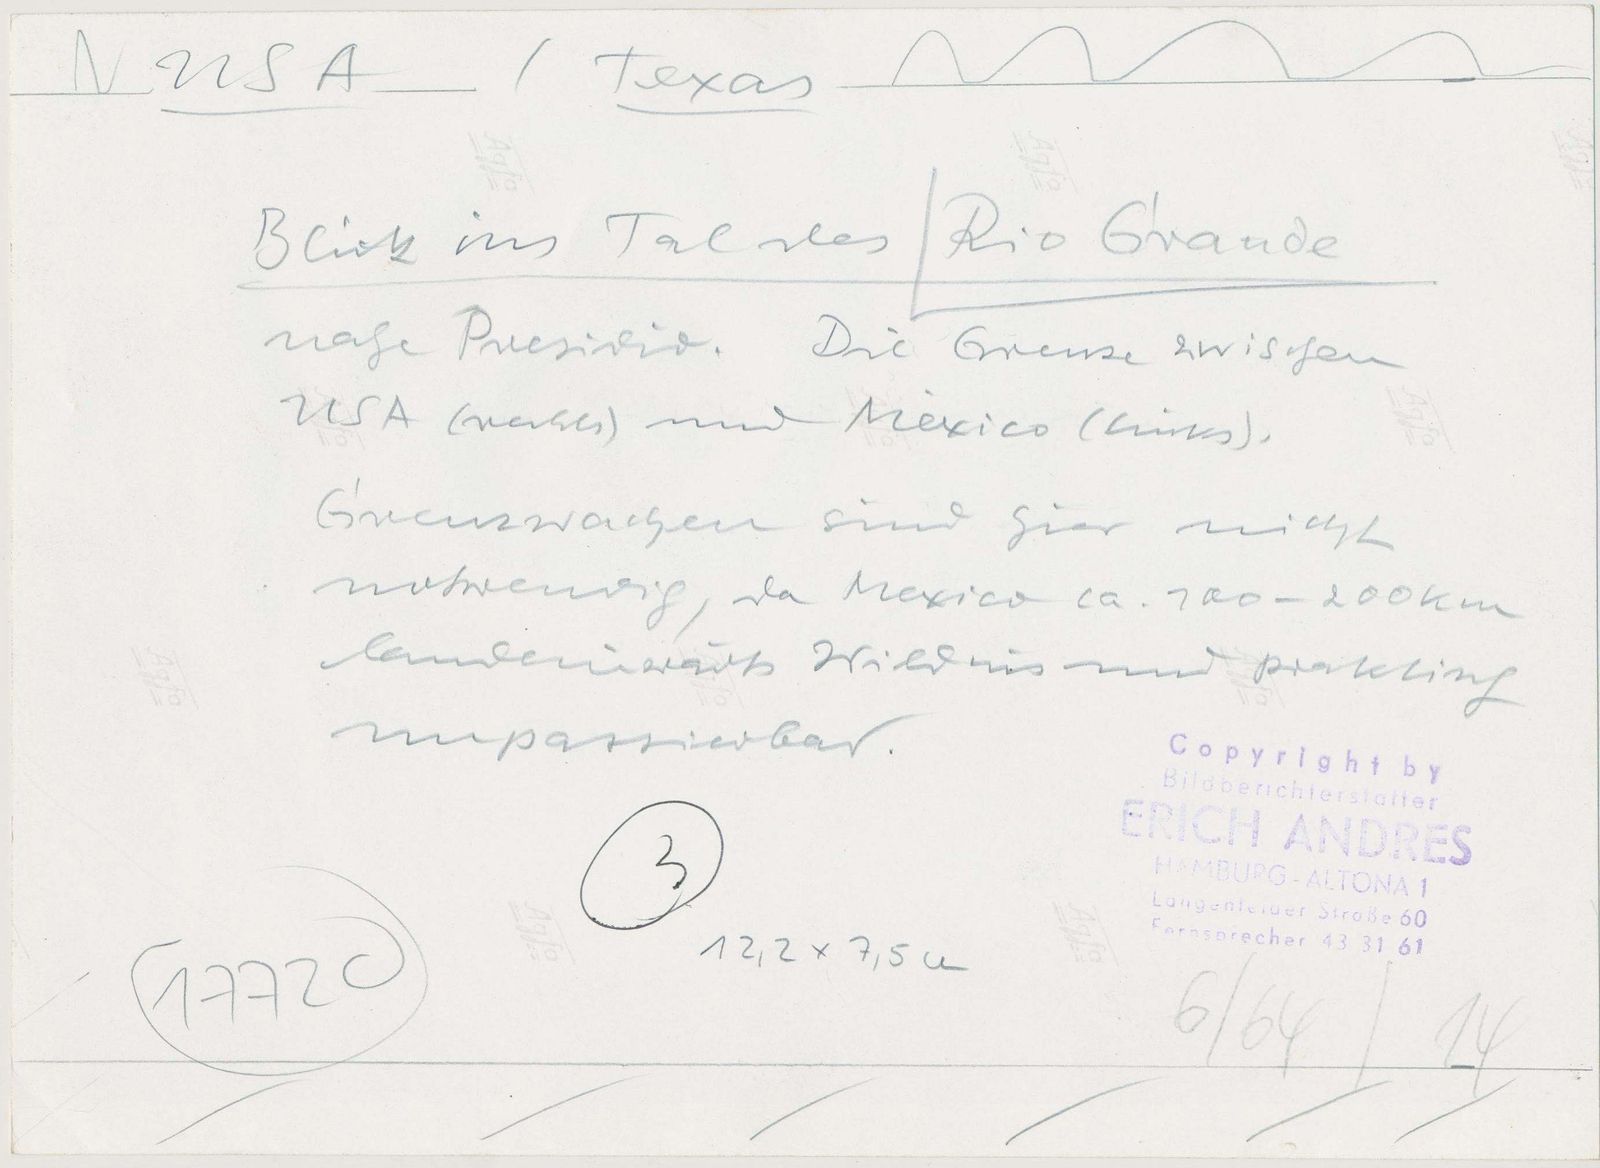 USA / Texas
Blick ins Tal des Rio Grande
nahe Presidio. Die Grenze zwischen
USA (rechts) und Mexico (links).
Grenzwachen sind hier nicht
notwendig, da Mexico ca. 100-200km
landeinwärts Wildnis und praktisch
unpassierbar.
Copyright by
Bildberichterstatter
ERICH ANDRES
HAMBURG-ALTONA 1
Langenfelder Straße 60
Fernsprecher 43 31 61
3
12,2 x 7,5
17720
6/64 / 14
Agfa
Agfa
Agfa
Agfa
Agfa
Agfa
Agfa
Agfa
Agfa
Agfa
Agfa